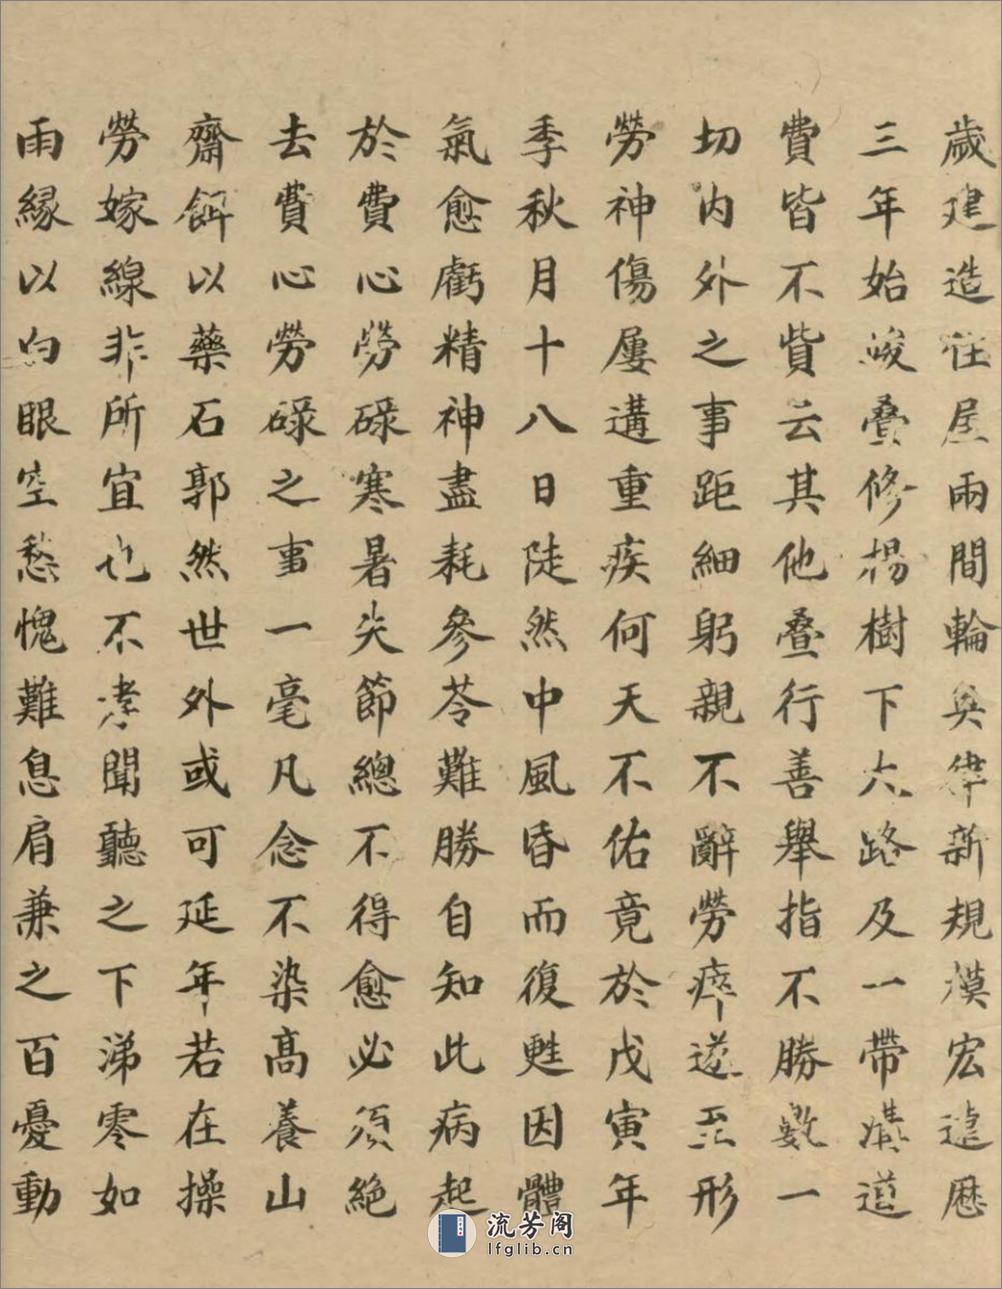 歲建造住屋兩間輪奐肂新規模宏遠歷
三年始竣疊修楊樹下六路及一帶濆道
費皆不貲云其他疊行善舉指不勝數一
切內外之事距細躬親不辭勞瘁遂至形
勞神傷屢遘重疾何天不佑竟於戊寅年
季秋月十八日陡然中風昏而復甦因體
氣愈虧精神盡耗參苓難勝自知此病起
於費心勞碌寒暑失節總不得愈必須絕
去費心勞碌之事一毫凡念不染高養山
齋餌以藥石郭然世外或可延年若在操
勞嫁線非所宜也不孝聞聽之下涕零如
雨緣以白眼空愁愧難息肩兼之百憂動
流芳阁
lfglib.cn